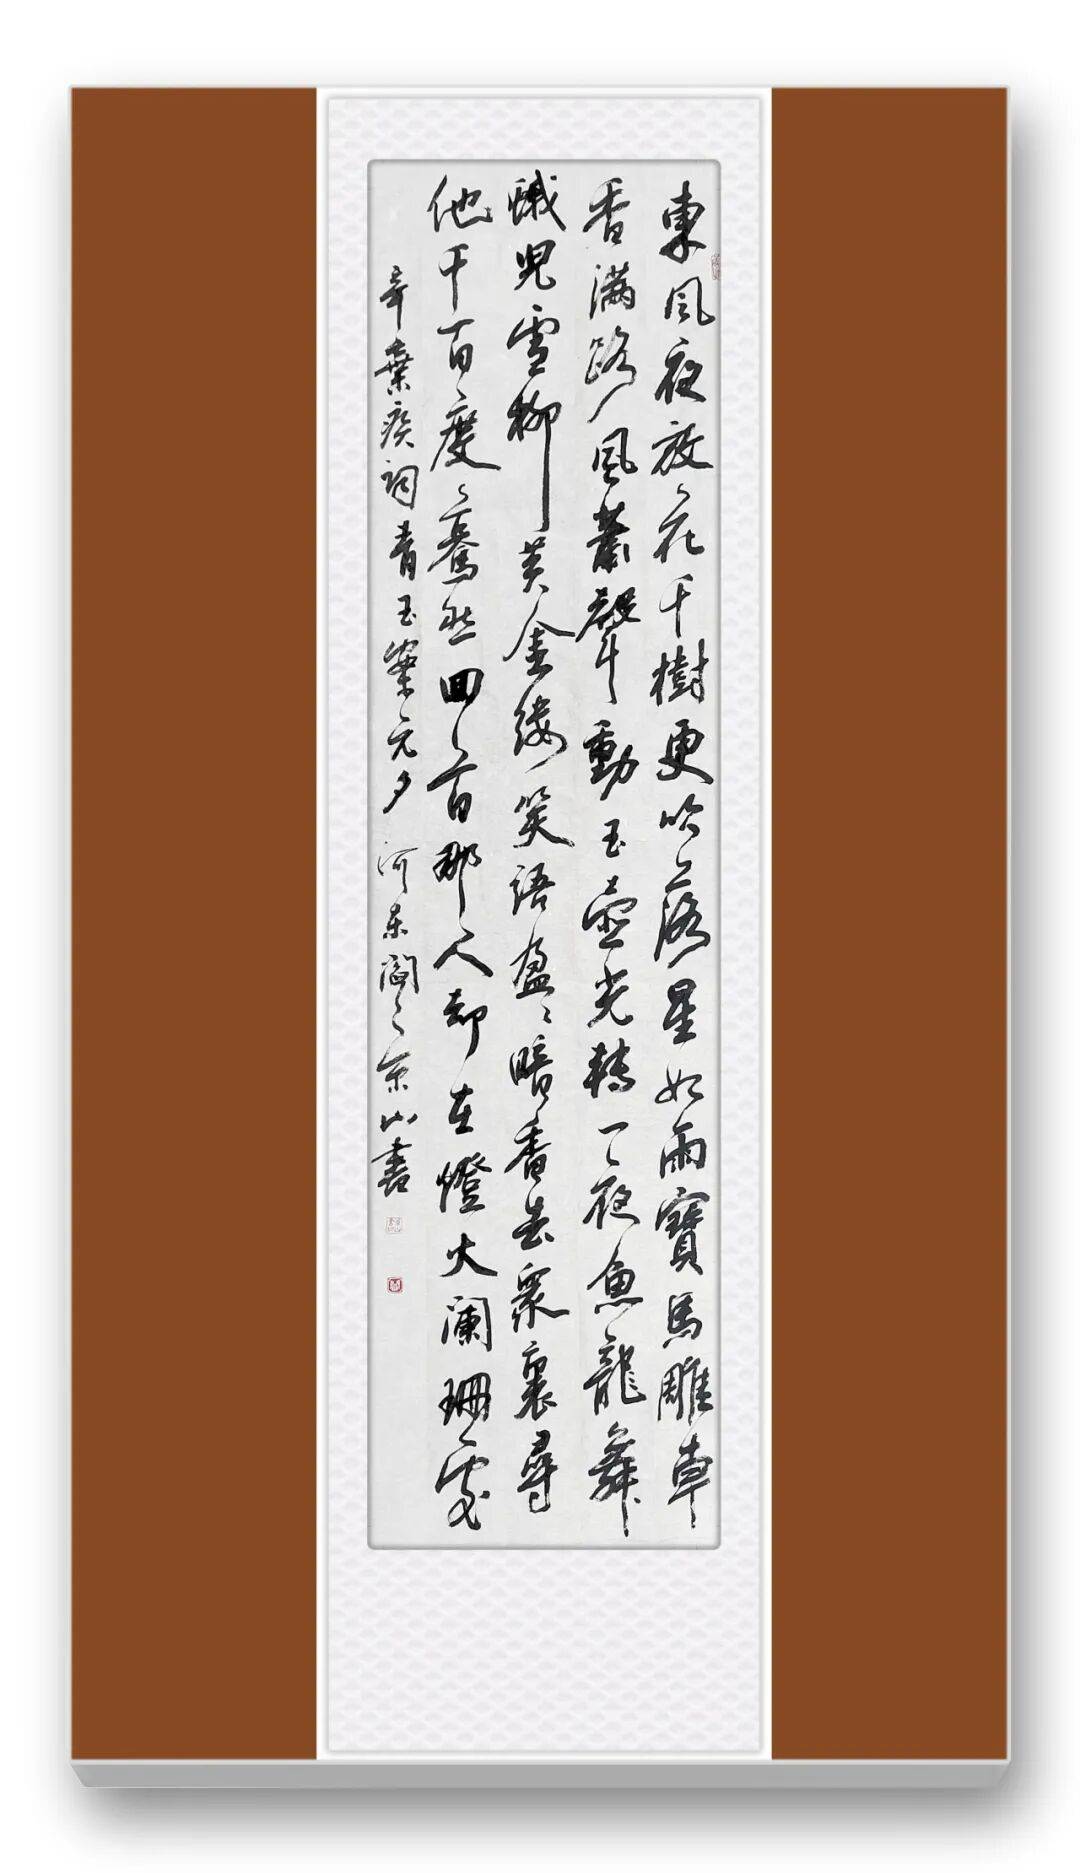 東風夜放花千樹更吹落星如雨寶馬雕車
香滿路風蕭聲動玉壺光轉一夜魚龍舞
蛾兒雪柳黃金縷笑語盈〻暗香去眾裏尋
他千百度驀然回首那人却在燈火瀾珊處
辛棄疾詞青玉案元夕 河東閻 山書